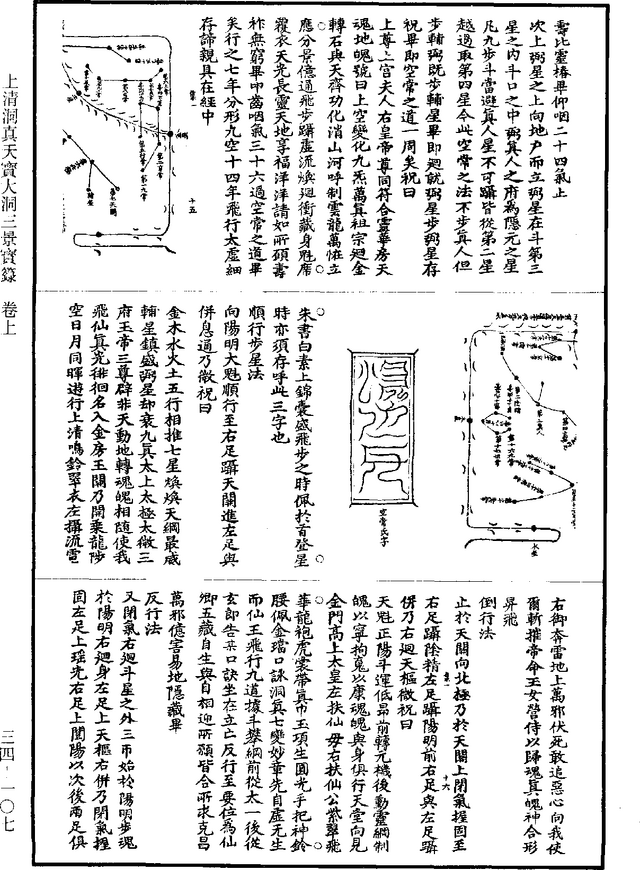 壽比靈椿畢仰咽二十四氣上
次上弼星之上向地户而立弼星在斗第三
星之內斗口之中弼真人之府為隱元之星
凡九步斗當避真人星不可躡皆從第二星
越過取第四星令此空常之法不步真人但
步輔弼既步輔星畢即廻就弼星步弼星存
祝畢即空常之道一周矣祝曰
上尊上宫夫人右皇帝尊同符合靈華房天
魂地魄號曰上空變化九炁萬真祖宗廻金
轉石與天齊功化消山河呼制雲龍萬恠立
應分景億通飛步躡虛流煥廻衝藏身魁席
覆衣天光長靈天地享福洋洋請如所願壽
祚無窮畢叩齒咽氣三十六過空常之道畢
矣行之七年分形九空十四年飛行太虛細
存諦觀具在經中
十五
朱書白素上錦囊盛飛步之時佩於首登星
時亦須存呼此三字也
順行步星法
向陽明大魁順行至右足躡天關進左足與
併息通乃微祝曰
金木水火土五行相推七星煥煥天綱最威
輔星鎮盛弼星却衰九真太上太極太微三
府玉帝三尊辟非天動地轉魂魄相隨使我
飛仙真光徘徊名入金房玉闕乃開乘龍陟
空日月同暉遊行上清鳴鈴翠衣左攝流電
右御奔雷地上萬邪伏死敢追惡心向我使
爾斬摧帝命玉女營侍以歸魂真魄神合形
昇飛
倒行法
止於天關向北極乃於天關上閉氣握固至
右足躡陰精左足躡陽明前右足與左足躡
併乃右廻天樞微祝曰
十六
天魁正陽斗運低昂前轉元機後動靈綱制
魄以寧拘魂以康魂魄與身俱行天堂向見
金門高上太皇左扶仙母右扶仙公紫翠飛
華龍袍虎裳帶真巾玉項生圓光手把神鈴
腰佩金璫口詠洞真七變妙章先自虛无生
而仙王飛行九道據斗攀綱前從太一後從
玄郎告某口訣坐在立亡反行至要位為仙
卿五藏自生與自相迎所願皆合所求克昌
萬邪億害易地隱藏畢
反行法
又閉氣右廻斗星之外三帀始於陽明步魂
於陽明右廻身左足上天樞右併乃閉氣握
固左足上瑶光右足上闓陽以次後兩足俱
上清洞真天寶大洞三景寶籙 卷上
三四-一〇七